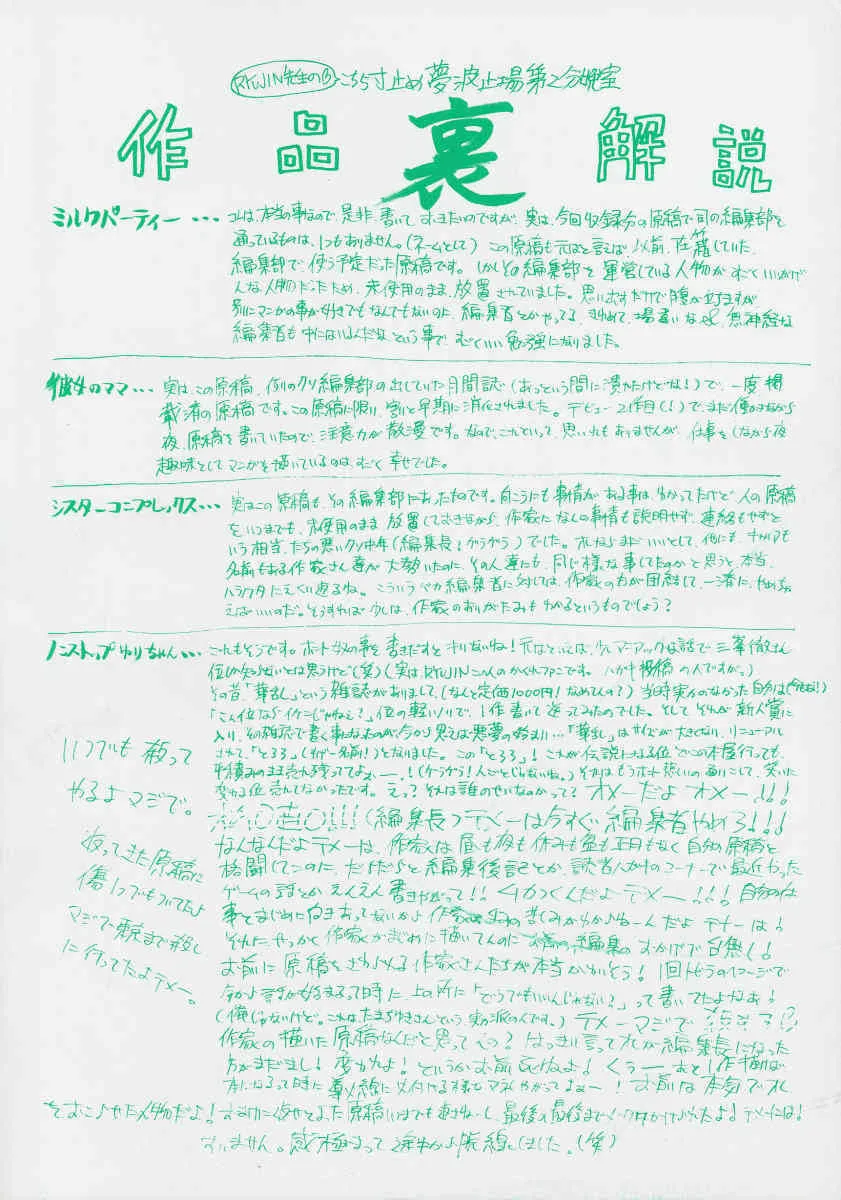 RYUJIN先生の こちら寸止め夢波止場第2分娩室
作品裏解説
ミルクパーティー・・・ コレは、本当の事なので是非、書いておきたいのですが、実は、今回収録分の原稿で司の編集部を
通っているものは、1つもありません。(ネームとして) この原稿も元はと言えば、以前、在籍していた
編集部で、使う予定だった原稿です。しかしその編集部を運営している人物がすごくいいかげ
んな人物だったため、未使用のまま、放置されていました。思い出すだけで腹が立ちますが
別にマンガの事が好きでもなんでもないのに、編集者とかやってる、きわめて、場違いな&、無神経な
編集者も中にはいるんだな、という事で、すごくいい勉強になりました。
彼女のママ・・・ 実は、この原稿、例のクソ編集部の出していた月間誌(あっという間に潰れたけどな!)で、一度掲
載済の原稿です。この原稿に限り、割と早期に消化されました。デビュー2作目(!)で、まだ働きながら
夜、原稿を書いていたので、注意力が散漫です。なので、これといって、思い入れもありませんが、仕事をしながら夜
趣味としてマンガを描いているのは、すごく幸せでした。
シスターコンプレックス・・・ 実はこの原稿も、その編集部にあったものです。向こうにも事情がある事は、わかってたけど、人の原稿
をいつまでも、未使用のまま放置しておきながら、作家になんの事情も説明せず、連絡もせずと
いう相当、たちの悪いクソ中年(編集長:ゲラゲラ)でした。オレならまだいいとして、他にも、
名前もある作家さん達が大勢いたのに、その人達にも、同じ様な事してたのかと思うと、本当、
ハラワタにえくり返るね。こういうバカ編集者に対しては、作家の方が団結して、一斉に、やめちゃ
えばいいのだ。そうすれば少しは、作家のありがたみもわかるというものでしょう?
ノンストップゆりちゃん・・・ これもそうです。ホント奴の事を書きだすとキリないね!元はといえば、 な話で三峯徹さん
位しか知らないとは思うけど(笑)(実はRYUJINこの人のかくれファンです。ハガキ投稿の人ですが。)
その昔「華乱」という雑誌がありまして、(なんと定価1000円!なめてんの?)当時実力のなかった自分は(今もだ!)
「こん位ならイケんじゃねえ?」位の軽いノリで、1作書いて送ってみたのでした。そして それが新人賞に
入り、その雑誌で書く事になったのが、今から思えば悪夢の始まり・・・「華乱」はサイズが大きくなり、リニューアル
されて、「とろろ」(すげー名前!)となりました。この「とろろ」!これが伝説になる位どこの本屋行っても
平積みのまま売れ残ってよォー、!(ゲラゲラ!人ごとじゃないね。)それはもうホント悲しいの通りこして、笑いに
変わる位売れてなかったです。えっ?それは誰のせいなのかって?オメーだよオメー!!!
(編集長)テメーは今すぐ編集者やめろ!!!
なんなんだよテメーは、作家は昼も夜も休みも盆も正月もなく自分の原稿と
格闘してんのに、だらだらと編集後記とか、読者ハガキのコーナーで最近やった
ゲームの話とかえんえん書きやがって!!ムカつくんだよテメー!!!自分の仕
事とまじめに向きあってないから作家 の苦しみがわからねーんだよテメーは!
それに、せっかく作家がまじめに描いてんのに の編集のおかげで台無し!
お前に原稿をさわられる作家さんたちが本当かわいそう!1回トビラのイメージで
今から話が始まるって時に上の所に「どうでもいいんじゃない?」って書いてたよなぁ!
(俺じゃないけど。これはたまちゆきさんという実力派の人です。)テメーマジで
作家の描いた原稿なんだと思ってんの?はっきり言ってオレが編集長になった
方がまだまし! というかお前死ねよ!くぅーあと1作描けば
本になるって時に
いつでも殺って
やるよマジで。
返ってきた原稿に
傷1つでもついてたら
マジで東京まで殺し
に行ってたよテメー。
すみません。感極まって途中から脱線しました。(笑)